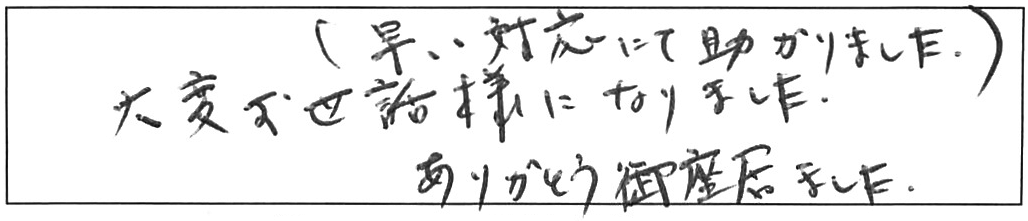 (早い対応にて助かりました.)
大変お世話様になりました.
ありがとう御座居ました.